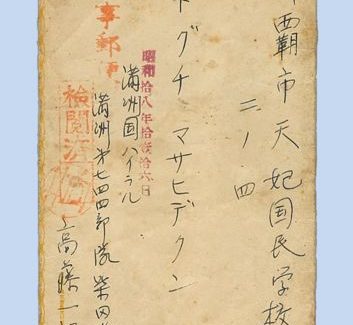 覇市天妃国民学校
二ノ四
ドグチ マサヒデクン
昭和拾八年拾弐月拾六日
満洲国ハイラル
満洲第七四四部隊柴田
高藤一
事郵
検閲済